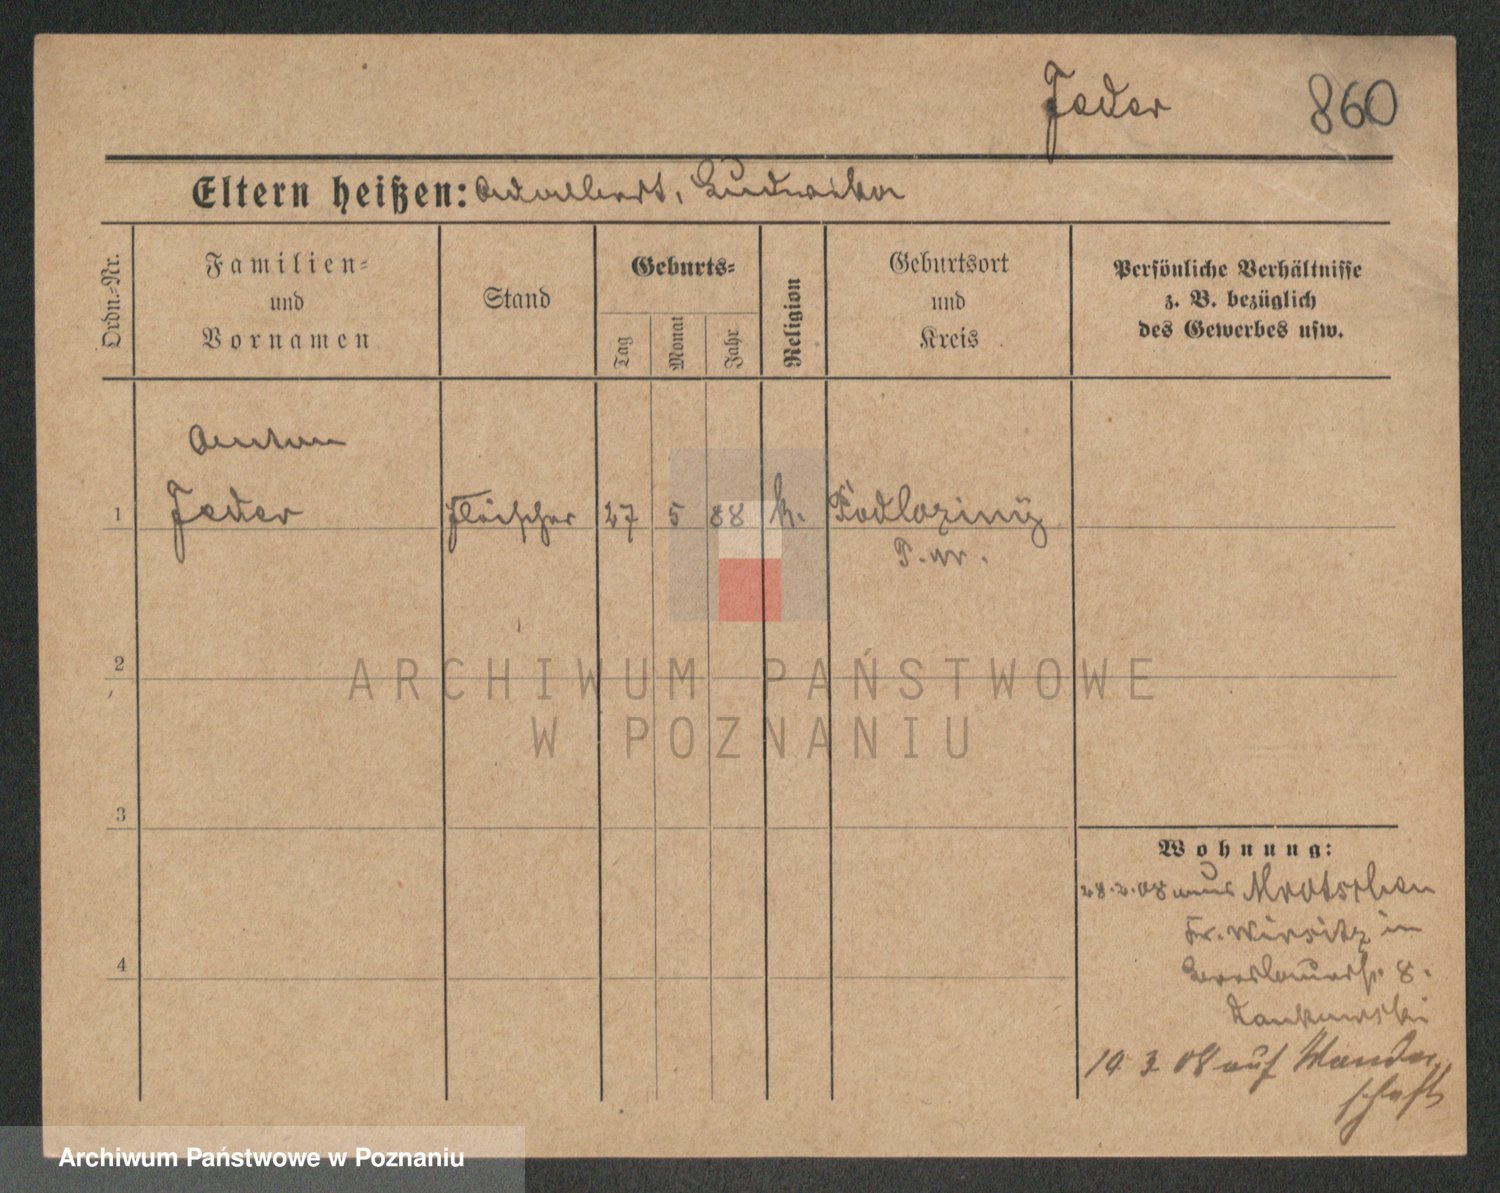 Feder 860
Eltern heißen: Adalbert, Ludwika
Ordn.-Nr.
Familien-
und
Vornamen
Stand
Geburts-
Tag
Monat
Jahr
Religion
Geburtsort
und
Kreis
Persönliche Verhältnisse
z. B. bezüglich
des Gewerbes usw.
Anton
1 Feder Fleischer 27 5 88 k.
P. W.
2
3
4
Wohnung:
28.2.08 aus Mrotschen
Kr. Wirsitz in
Breslauerstr. 8.
Dankowski
10. 3. 08 auf Wander
schaft
ARCHIWUM PAŃSTWOWE
W POZNANIU
Archiwum Państwowe w Poznaniu